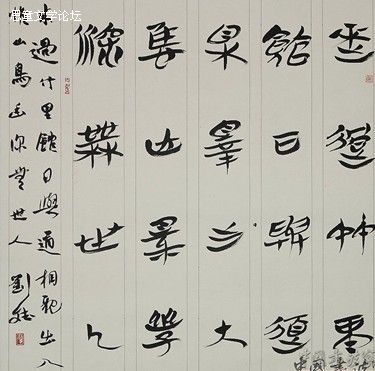 来過竹里
館日與道
相親出入
唯山鳥幽
深無世人
来過竹里館日與道相親出入
唯山鳥幽深無世人 劉
文学论坛